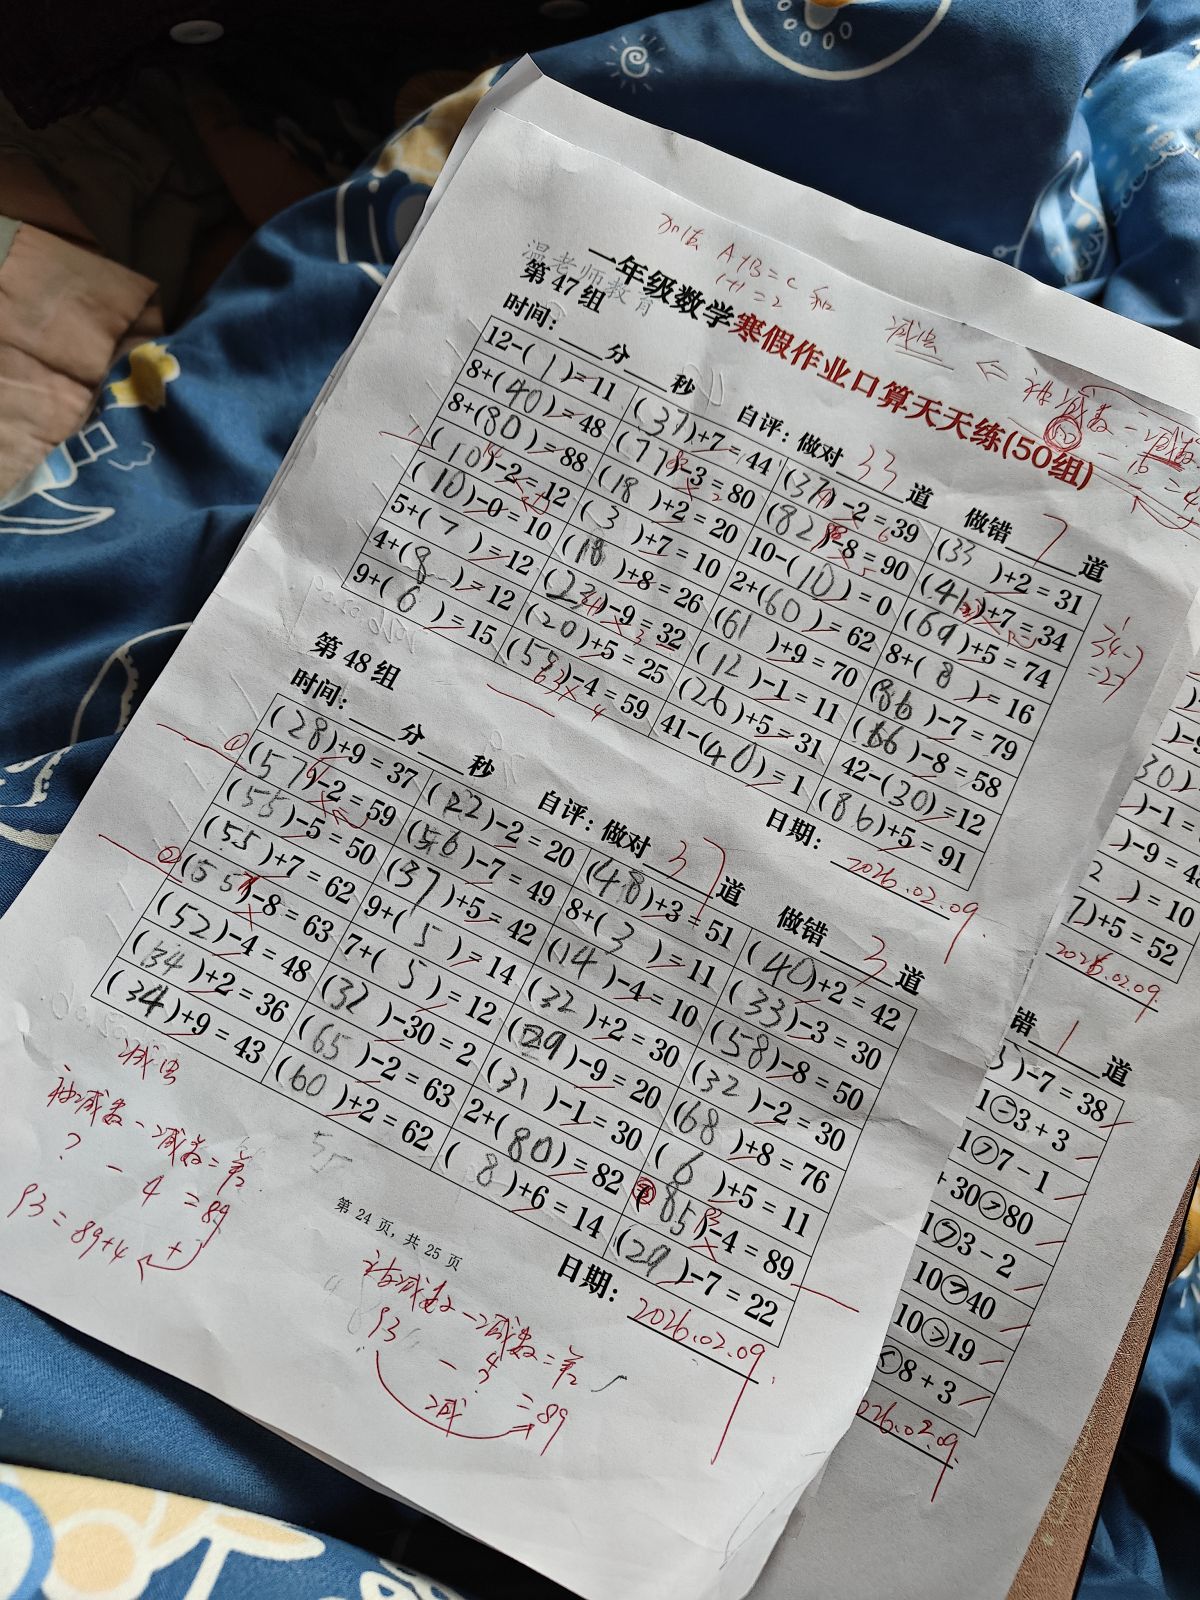 加法 A+B=C 和
1+1=2
减法 ←
温老师教育
一年级数学寒假作业口算天天练(50组)
第 47 组
时间：____分____秒 自评：做对 33 道 做错 7 道
12-( 1 )=11 (37)+7=44 (37)-2=39 (33 )+2=31
8+(40)=48 (77)-3=80 (82)-8=90 (41)+7=34
8+(80)=88 (18 )+2=20 10-(10)=0 (69)+5=74
(10)-2=12 ( 3 )+7=10 2+(60)=62 8+( 8 )=16
(10)-0=10 (18 )+8=26 (61 )+9=70 (86 )-7=79
5+( 7 )=12 (23)-9=32 (12 )-1=11 (66 )-8=58
4+(8 )=12 (20)+5=25 (26)+5=31 42-(30)=12
9+( 6 )=15 (58)-4=59 41-(40)=1 (86)+5=91
34-7
=27
日期：2026.02.09.
第 48 组
时间：____分____秒 自评：做对 37 道 做错 3 道
(28)+9=37 (22)-2=20 (48)+3=51 (40)+2=42
(57)-2=59 (56)-7=49 8+( 3 )=11 (33)-3=30
(55)-5=50 (37)+5=42 (14 )-4=10 (58)-8=50
(55 )+7=62 9+( 5 )=14 (32 )+2=30 (32 )-2=30
(55)-8=63 7+( 5 )=12 (29)-9=20 (68 )+8=76
(52)-4=48 (32 )-30=2 (31 )-1=30 ( 6 )+5=11
(34)+2=36 (65 )-2=63 2+(80)=82 (85)-4=89
(34)+9=43 (60 )+2=62 ( 8 )+6=14 (29 )-7=22
日期：2026.02.09.
减法
被减数-减数=差
? - 4 =89
93=89+4
第 24 页，共 25 页
被减数-减数=差
93 - 4 =89
减
)-1=
)-9=48
2 )=10
7)+5=52
2026.02.09.
错 1 道
)-7=38
3+3
7-1
+30>80
3-2
10>40
10>19
<8+3
2026.02.09.